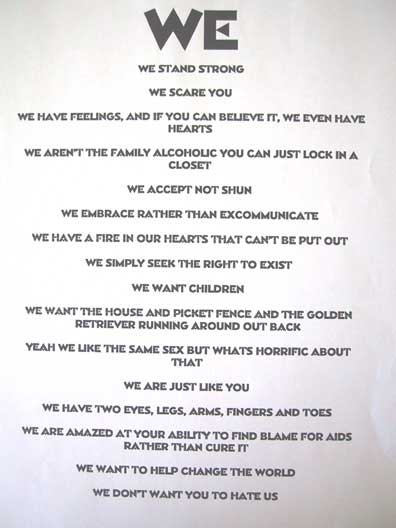 WE
WE STAND STRONG
WE SCARE YOU
WE HAVE FEELINGS, AND IF YOU CAN BELIEVE IT, WE EVEN HAVE
HEARTS
WE AREN'T THE FAMILY ALCOHOLIC YOU CAN JUST LOCK IN A
CLOSET
WE ACCEPT NOT SHUN
WE EMBRACE RATHER THAN EXCOMMUNICATE
WE HAVE A FIRE IN OUR HEARTS THAT CAN'T BE PUT OUT
WE SIMPLY SEEK THE RIGHT TO EXIST
WE WANT CHILDREN
WE WANT THE HOUSE AND PICKET FENCE AND THE GOLDEN
RETRIEVER RUNNING AROUND OUT BACK
YEAH WE LIKE THE SAME SEX BUT WHATS HORRIFIC ABOUT
THAT
WE ARE JUST LIKE YOU
WE HAVE TWO EYES, LEGS, ARMS, FINGERS AND TOES
WE ARE AMAZED AT YOUR ABILITY TO FIND BLAME FOR AIDS
RATHER THAN CURE IT
WE WANT TO HELP CHANGE THE WORLD
WE DON'T WANT YOU TO HATE US